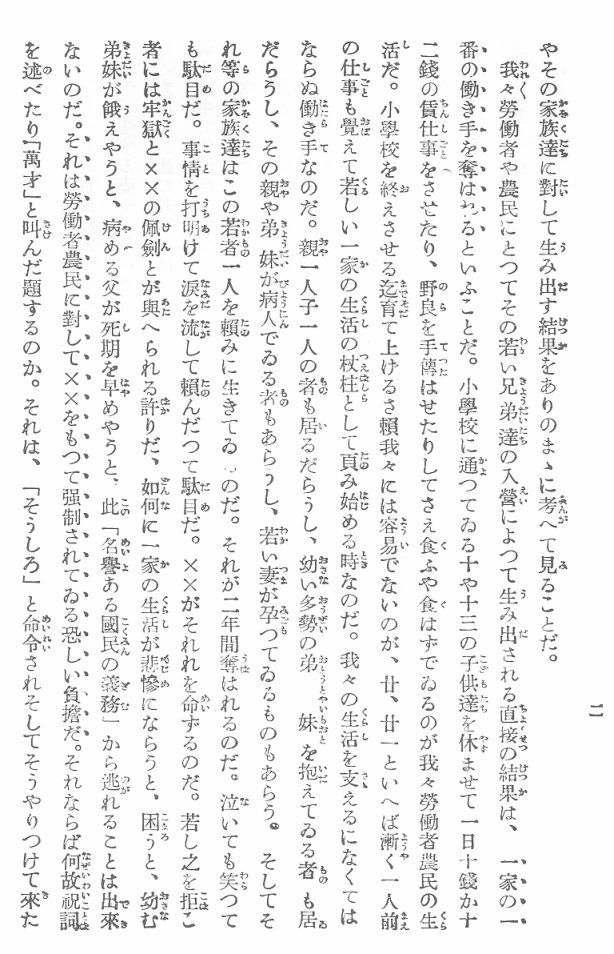 二
やその家族達に對して生み出す結果をありのまゝに考へて見ることだ。
我々勞働者や農民にとつてその若い兄弟達の入營によつて生み出される直接の結果は、一家の一
番の働き手を奪はれるといふことだ。小學校に通つてゐる十や十三の子供達を休ませて一日十錢か十
二錢の賃仕事をさせたり、野良を手傳はせたりしてさえ食ふや食はずでゐるのが我々勞働者農民の生
活だ。小學校を終えさせる迄育て上げるさ賴我々には容易でないのが、廿、廿一といへば漸く一人前
の仕事も覺えて若しい一家の生活の杖柱として頁み始める時なのだ。我々の生活を支えるになくては
ならぬ働き手なのだ。親一人子一人の者も居るだらうし、幼い多勢の弟妹を抱えてゐる者も居
だらうし、その親や弟妹が病人でゐる者もあらうし、若い妻が孕つてゐるものもあらう。そしてそ
れ等の家族達はこの若者一人を賴みに生きてゐのだ。それが二年間奪はれるのだ。泣いても笑つて
も駄目だ。事情を打明けて涙を流して賴んだつて駄目だ。××がそれれを命ずるのだ。若し之を拒こ
者には牢獄と××の佩劍とが與へられる許りだ、如何に一家の生活が悲慘にならうと、困うと、幼む
弟妹が餓えやうと、病める父が死期を早めやうと、此「名譽ある國民の義務」から逃れることは出來
ないのだ。それは勞働者農民に對して××をもつて强制されてゐる恐しい負擔だ。それならば何故祝詞
を述べたり「萬才」と叫んだ題するのか。それは、「そうしろ」と命令されそしてそうやりつけて來た